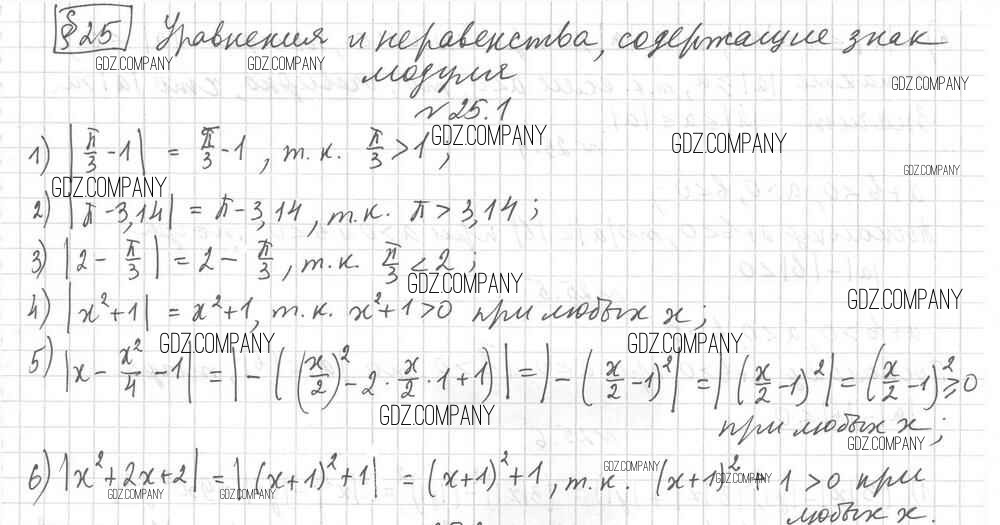 § 25 Уравнения и неравенства, содержащие знак
GDZ.COMPANY GDZ.COMPANY
модуля
GDZ.COMPANY
№25.1
1) |π/3 - 1| = π/3 - 1, т.к. π/3 > 1;
GDZ.COMPANY GDZ.COMPANY
GDZ.COMPANY
GDZ.COMPANY
2) |π - 3,14| = π - 3,14, т.к. π > 3,14;
3) |2 - π/3| = 2 - π/3, т.к. π/3 < 2;
GDZ.COMPANY
GDZ.COMPANY
4) |x²+1| = x²+1, т.к. x²+1>0 при любых x;
GDZ.COMPANY GDZ.COMPANY
5) |x - x²/4 - 1| = |-((x/2)² - 2 · x/2 · 1 + 1)| = |-(x/2 - 1)²| = |(x/2 - 1)²| = (x/2 - 1)² ≥ 0
GDZ.COMPANY
при любых x;
GDZ.COMPANY
6) |x²+2x+2| = |(x+1)²+1| = (x+1)²+1, т.к. (x+1)² + 1 > 0 при
GDZ.COMPANY GDZ.COMPANY GDZ.COMPANY GDZ.COMPANY
любых x.